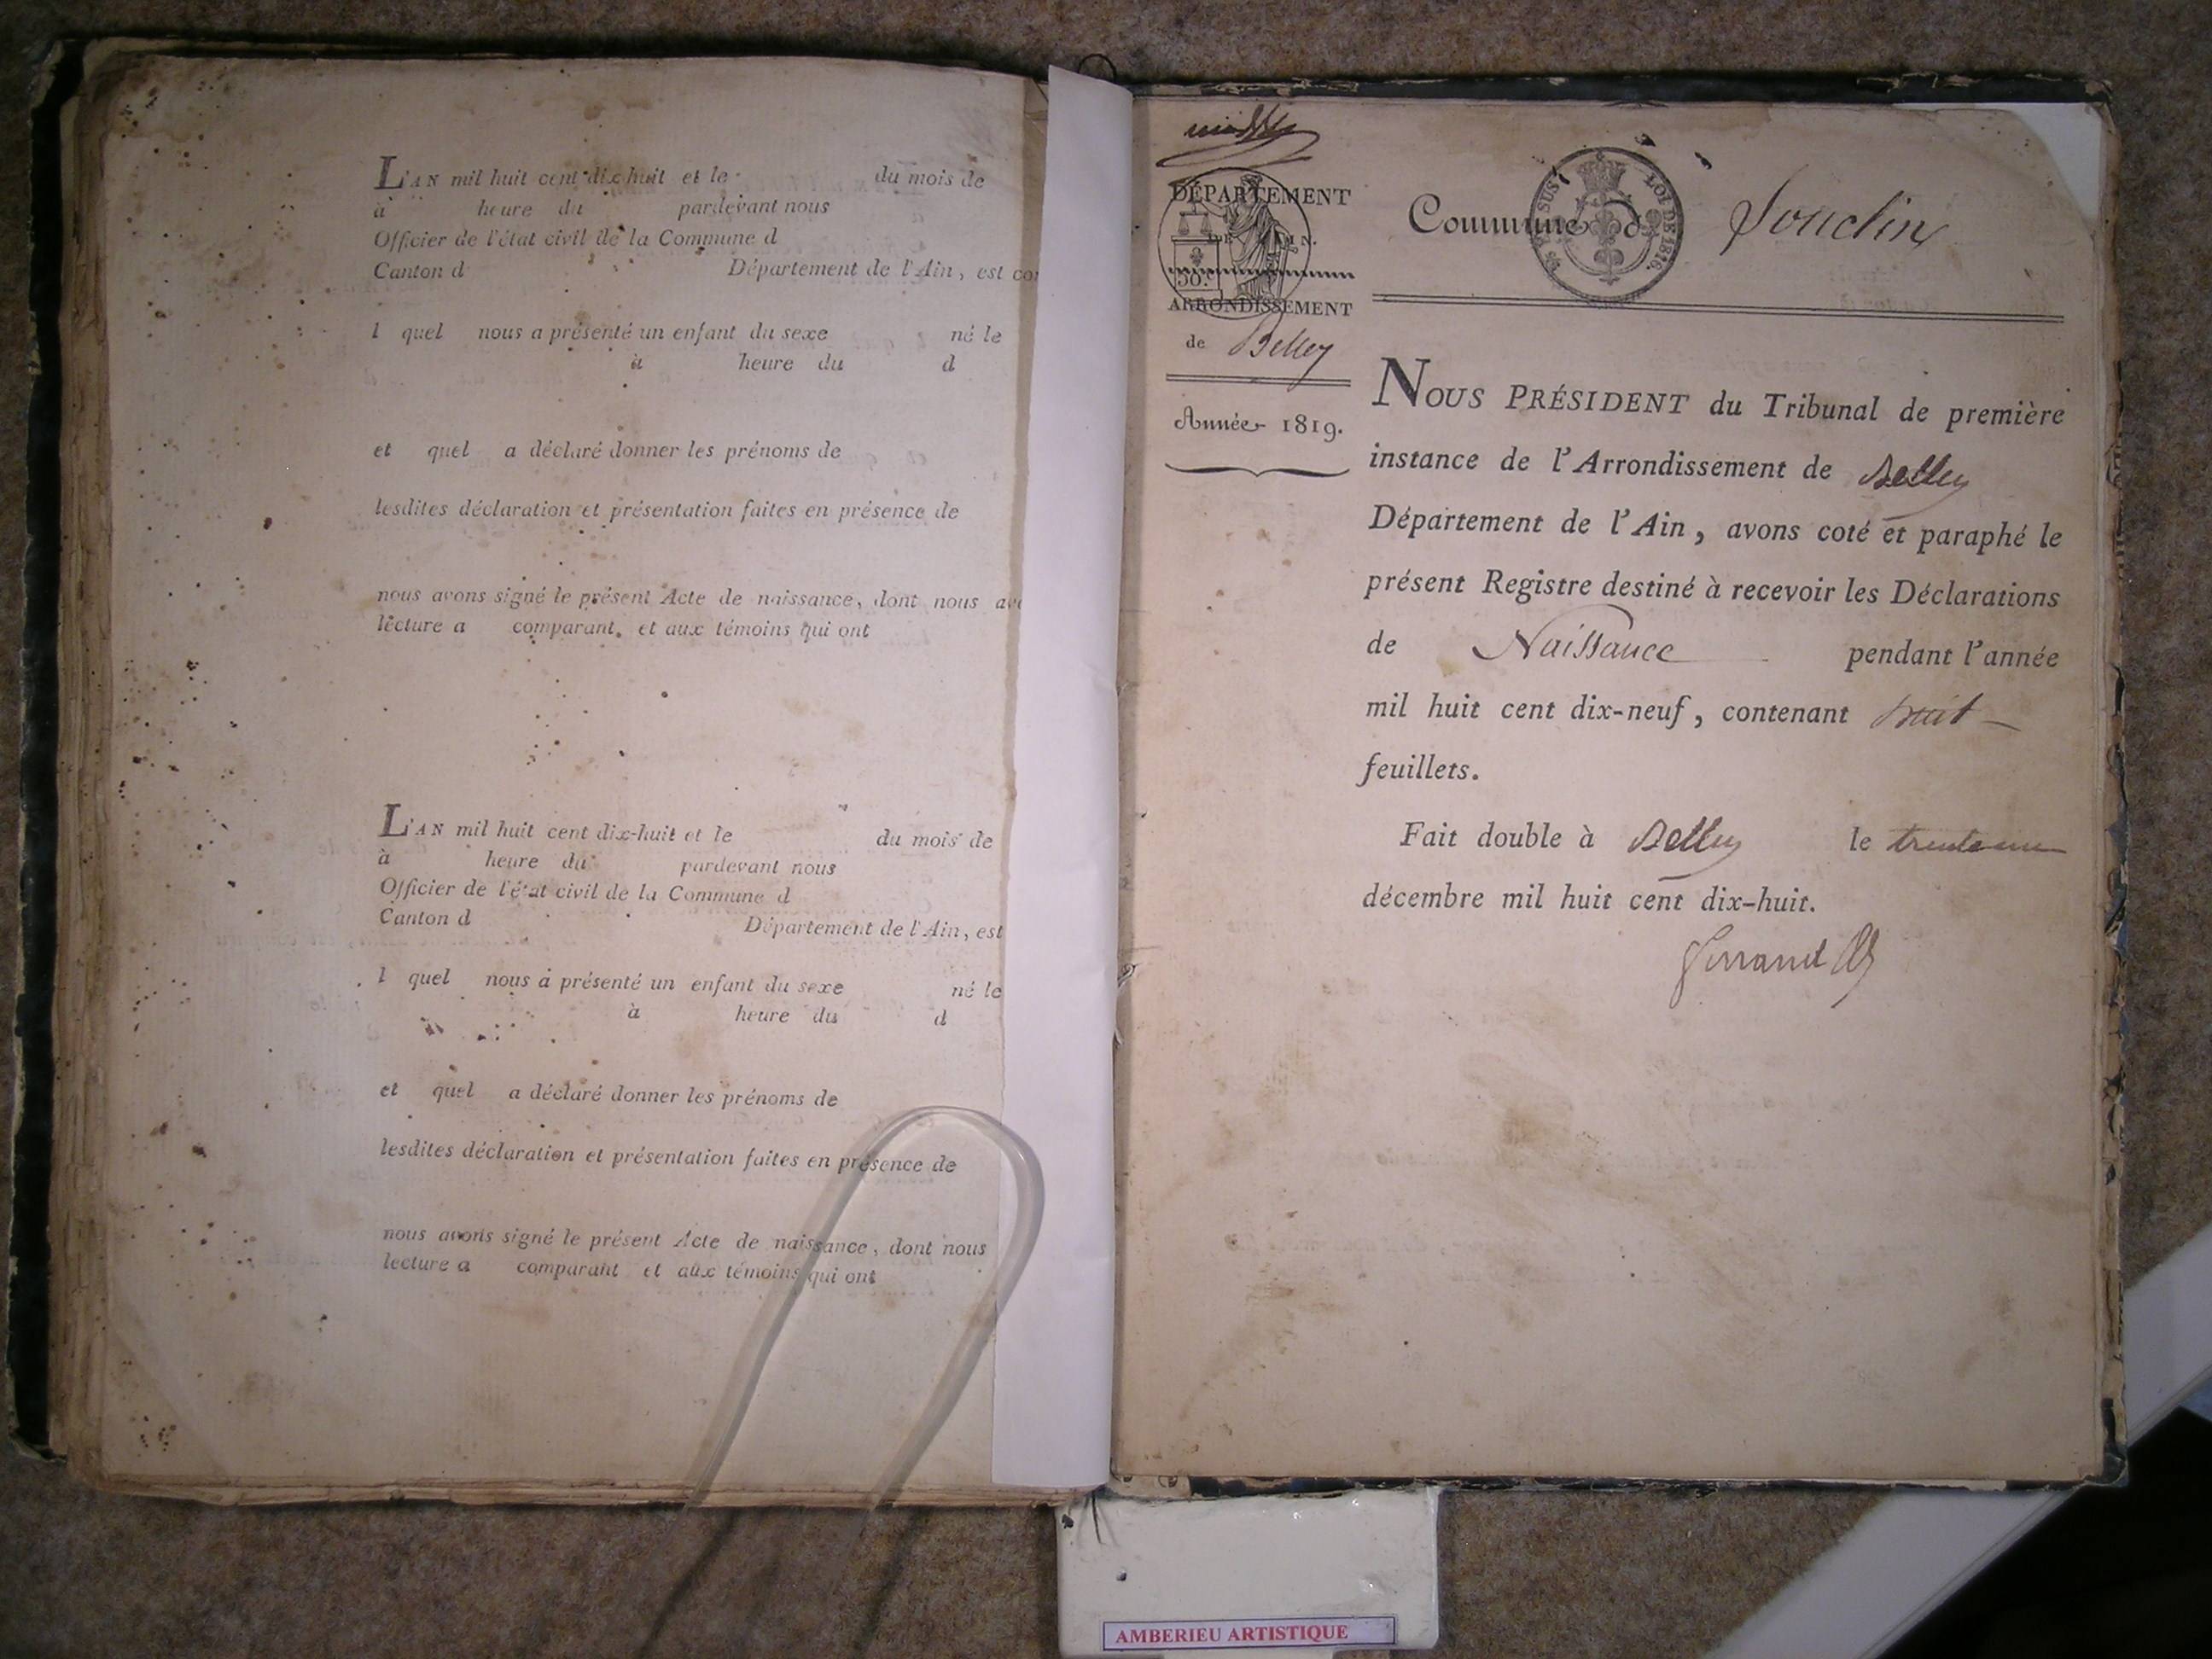 L'AN mil huit cent dix-huit et le du mois de
à heure du pardevant nous
Officier de l'état civil de la Commune d
Canton d Département de l'Ain, est
l quel nous a présenté un enfant du sexe né le
à heure du d
et quel a déclaré donner les prénoms de
lesdites déclaration et présentation faites en présence de
nous avons signé le présent Acte de naissance, dont nous
lecture a comparant, et aux témoins qui ont
L'AN mil huit cent dix-huit et le du mois de
à heure du pardevant nous
Officier de l'état civil de la Commune d
Canton d Département de l'Ain, est
l quel nous a présenté un enfant du sexe né le
à heure du d
et quel a déclaré donner les prénoms de
lesdites déclaration et présentation faites en présence de
nous avons signé le présent Acte de naissance, dont nous
lecture a comparant et aux témoins qui ont
DÉPARTEMENT
DE L'AIN.
50.c
ARRONDISSEMENT
de Belley
Année 1819.
Commune d Souclin
LOI DE 1816.
NOUS PRÉSIDENT du Tribunal de première
instance de l'Arrondissement de Belley
Département de l'Ain, avons coté et paraphé le
présent Registre destiné à recevoir les Déclarations
de Naissance pendant l'année
mil huit cent dix-neuf, contenant huit
feuillets.
Fait double à Belley le trente un
décembre mil huit cent dix-huit.
AMBERIEU ARTISTIQUE